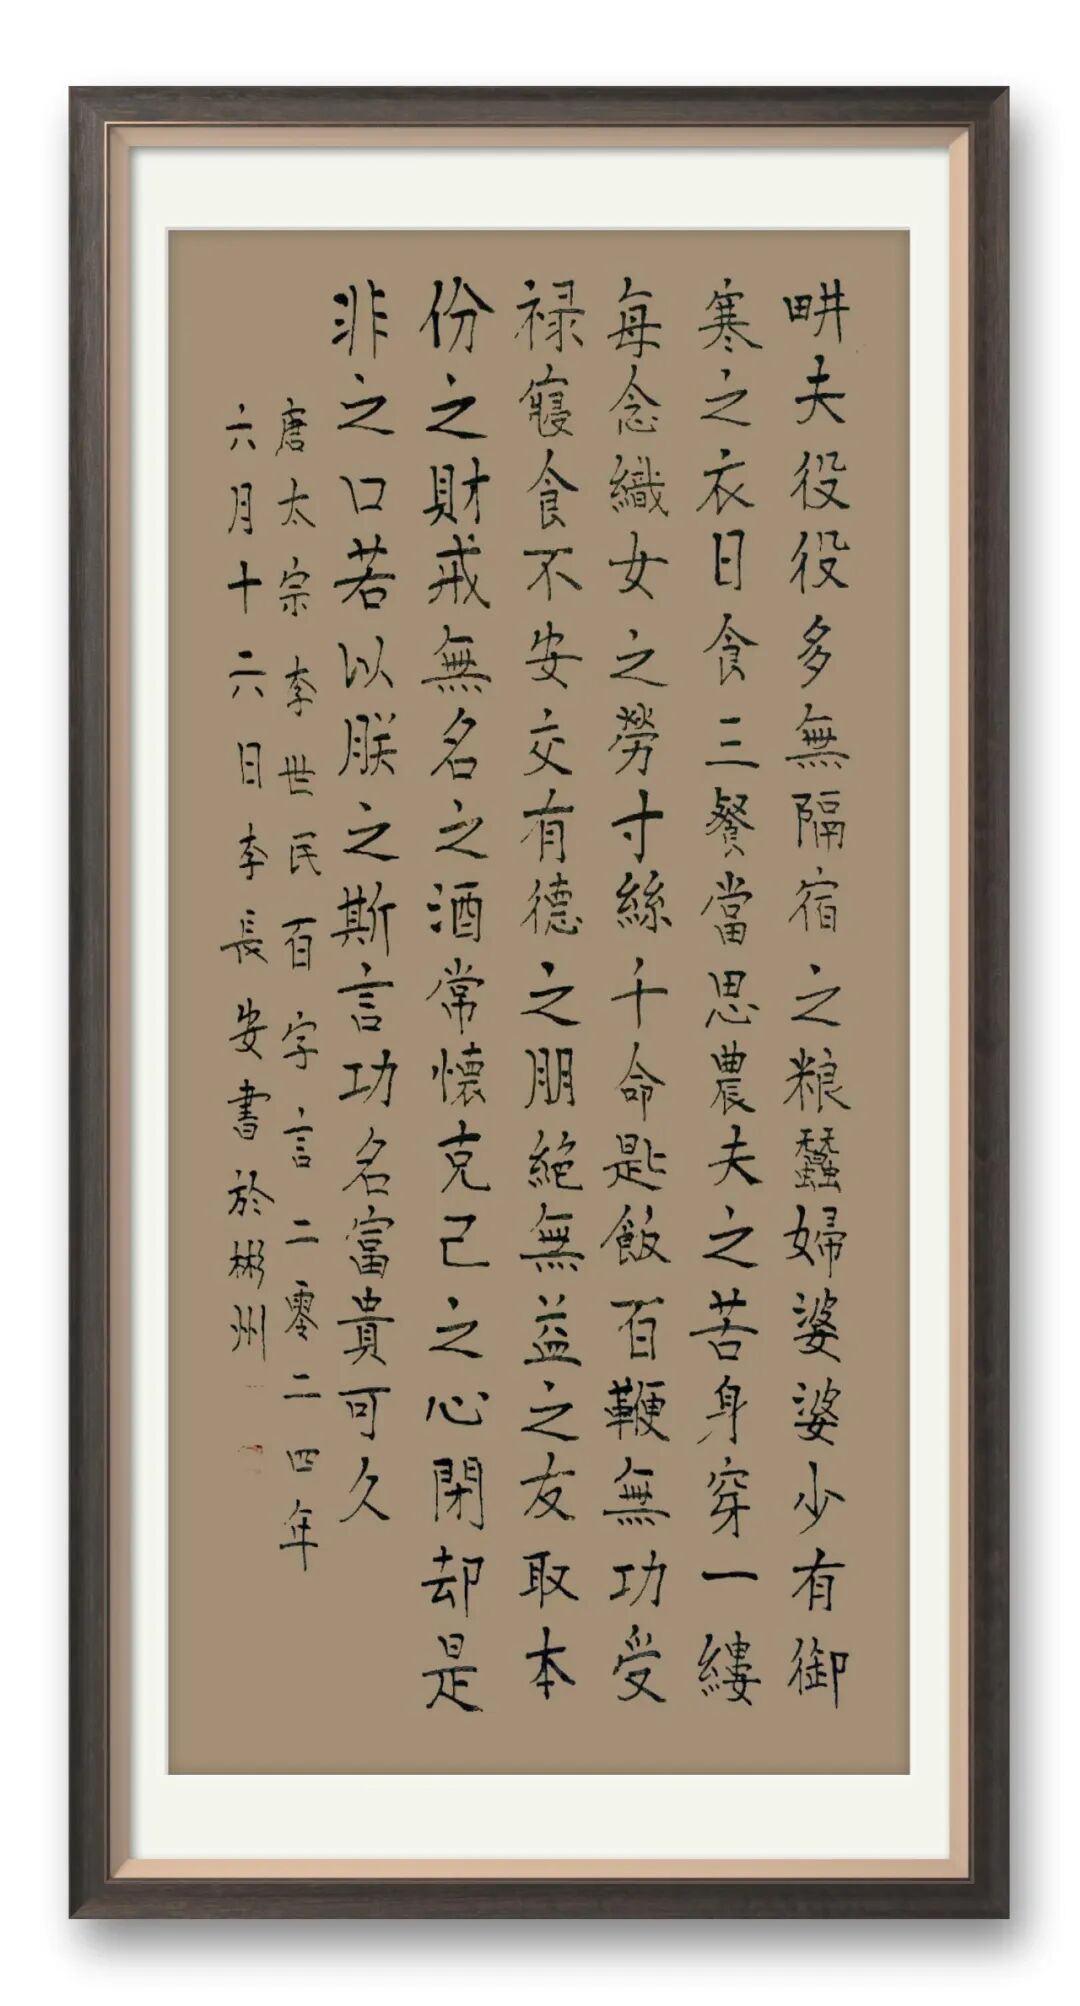 畊夫役役多無隔宿之粮蠶婦婆婆少有御
寒之衣日食三餐當思農夫之苦身穿一縷
每念織女之勞寸絲千命匙飯百鞭無功受
禄寝食不安交有德之朋絕無益之友取本
份之財戒無名之酒常懷克己之心閉却是
非之口若以朕之斯言功名富貴可久
唐太宗李世民百字言二零二四年
六月十六日李長安書於彬州